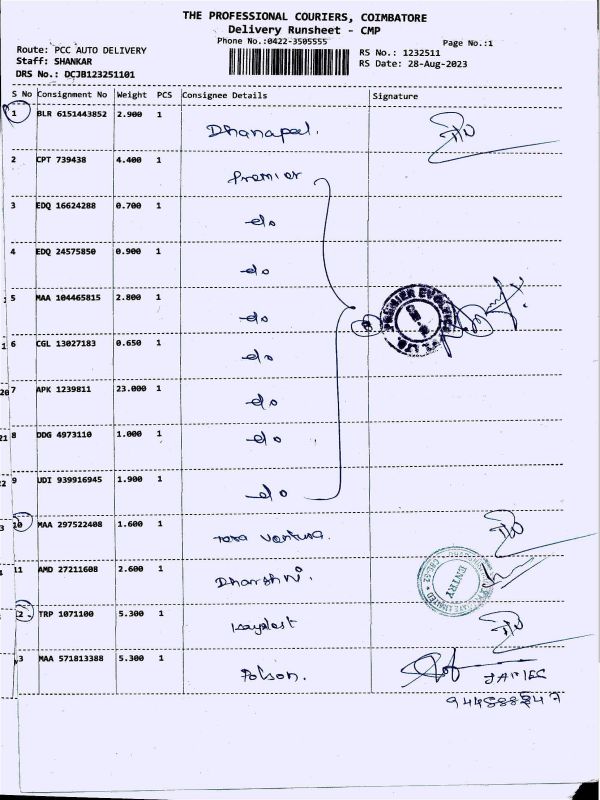 THE PROFESSIONAL COURIERS, COIMBATORE
Delivery Runsheet - CMP
Phone No.:0422-3505555
Page No.:1
Route: PCC AUTO DELIVERY
RS No.: 1232511
Staff: SHANKAR
RS Date: 28-Aug-2023
DRS No.: DCJB123251101
S No Consignment No Weight PCS Consignee Details Signature
1 BLR 6151443852 2.900 1 Dhanapal.
2 CPT 739438 4.400 1 Premier
3 EDQ 16624288 0.700 1 do
4 EDQ 24575850 0.900 1 do
5 MAA 104465815 2.800 1 do
6 CGL 13027183 0.650 1 do
7 APK 1239811 23.000 1 do
8 DDG 4973110 1.000 1 do
9 UDI 939916945 1.900 1 do
10 MAA 297522408 1.600 1
11 AMD 27211608 2.600 1 Dharshni.
ENTRY
12 TRP 1071100 5.300 1
13 MAA 571813388 5.300 1 Polson.